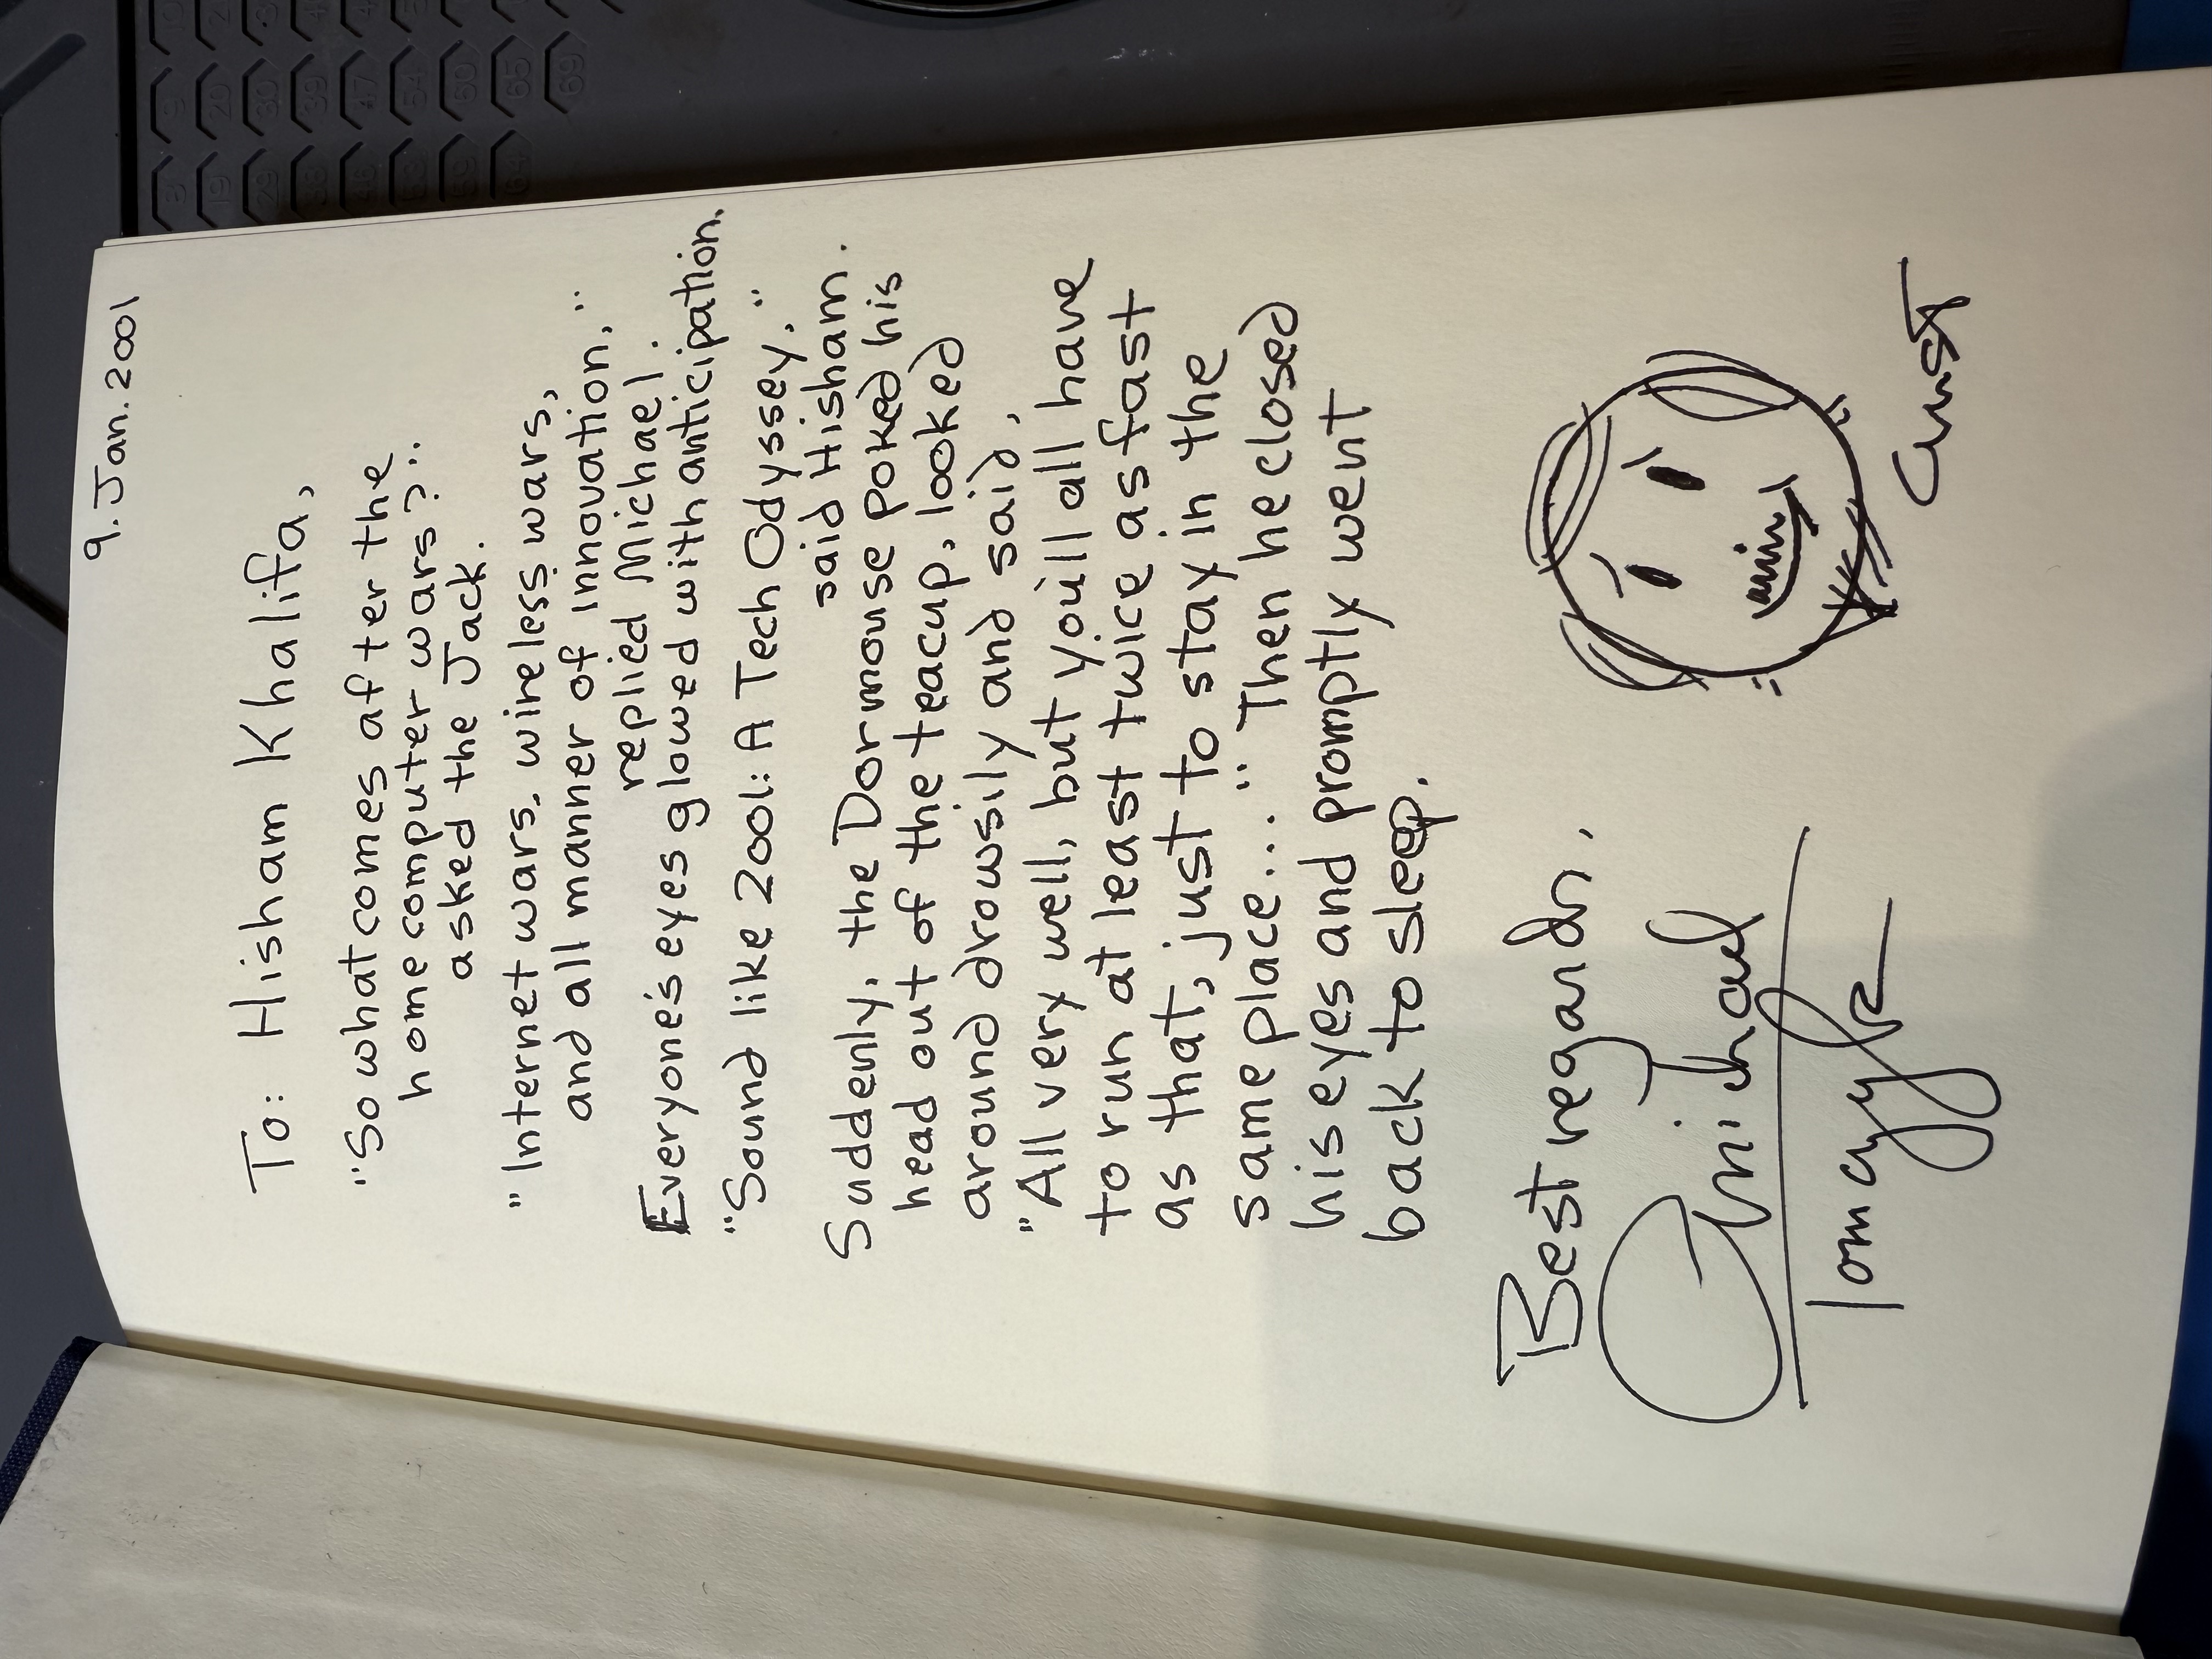 9. Jan. 2001
To: Hisham Khalifa,
"So what comes after the
home computer wars?"
asked the Jack.
"Internet wars, wireless wars,
and all manner of innovation,"
replied Michael.
Everyone's eyes glowed with anticipation.
"Sound like 2001: A Tech Odyssey."
said Hisham.
Suddenly, the Dormouse poked his
head out of the teacup, looked
around drowsily and said,
"All very well, but you'll all have
to run at least twice as fast
as that, just to stay in the
same place..." Then he closed
his eyes and promptly went
back to sleep.
Best regards,
Michael
Tomczyk
9 20 30 39 47 54 60 65 69
8 19 29 38 46 53 59 64